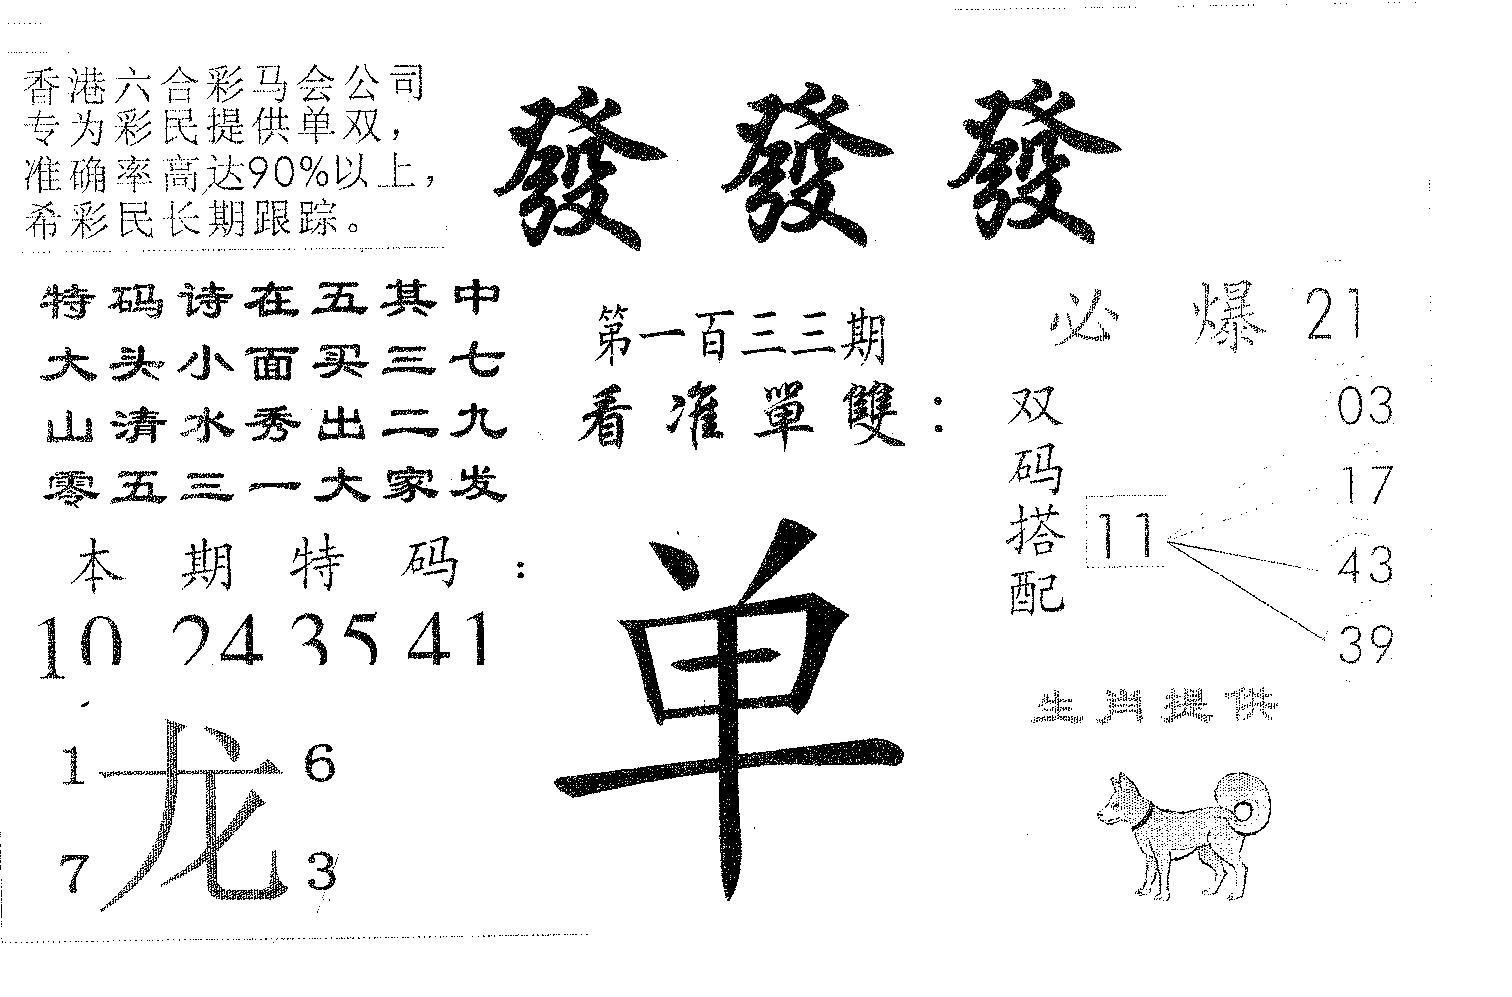 香港六合彩马会公司
专为彩民提供单双，
准确率高达90%以上，
希彩民长期跟踪。
發發發
特码诗在五其中
大头小面买三七
山清水秀出二九
零五三一大家发
本期特码：
10 24 35 41
1 龙 6
7 3
第一百三三期
看准單雙：
单
必爆21
双码搭配
11
03
17
43
39
生肖提供